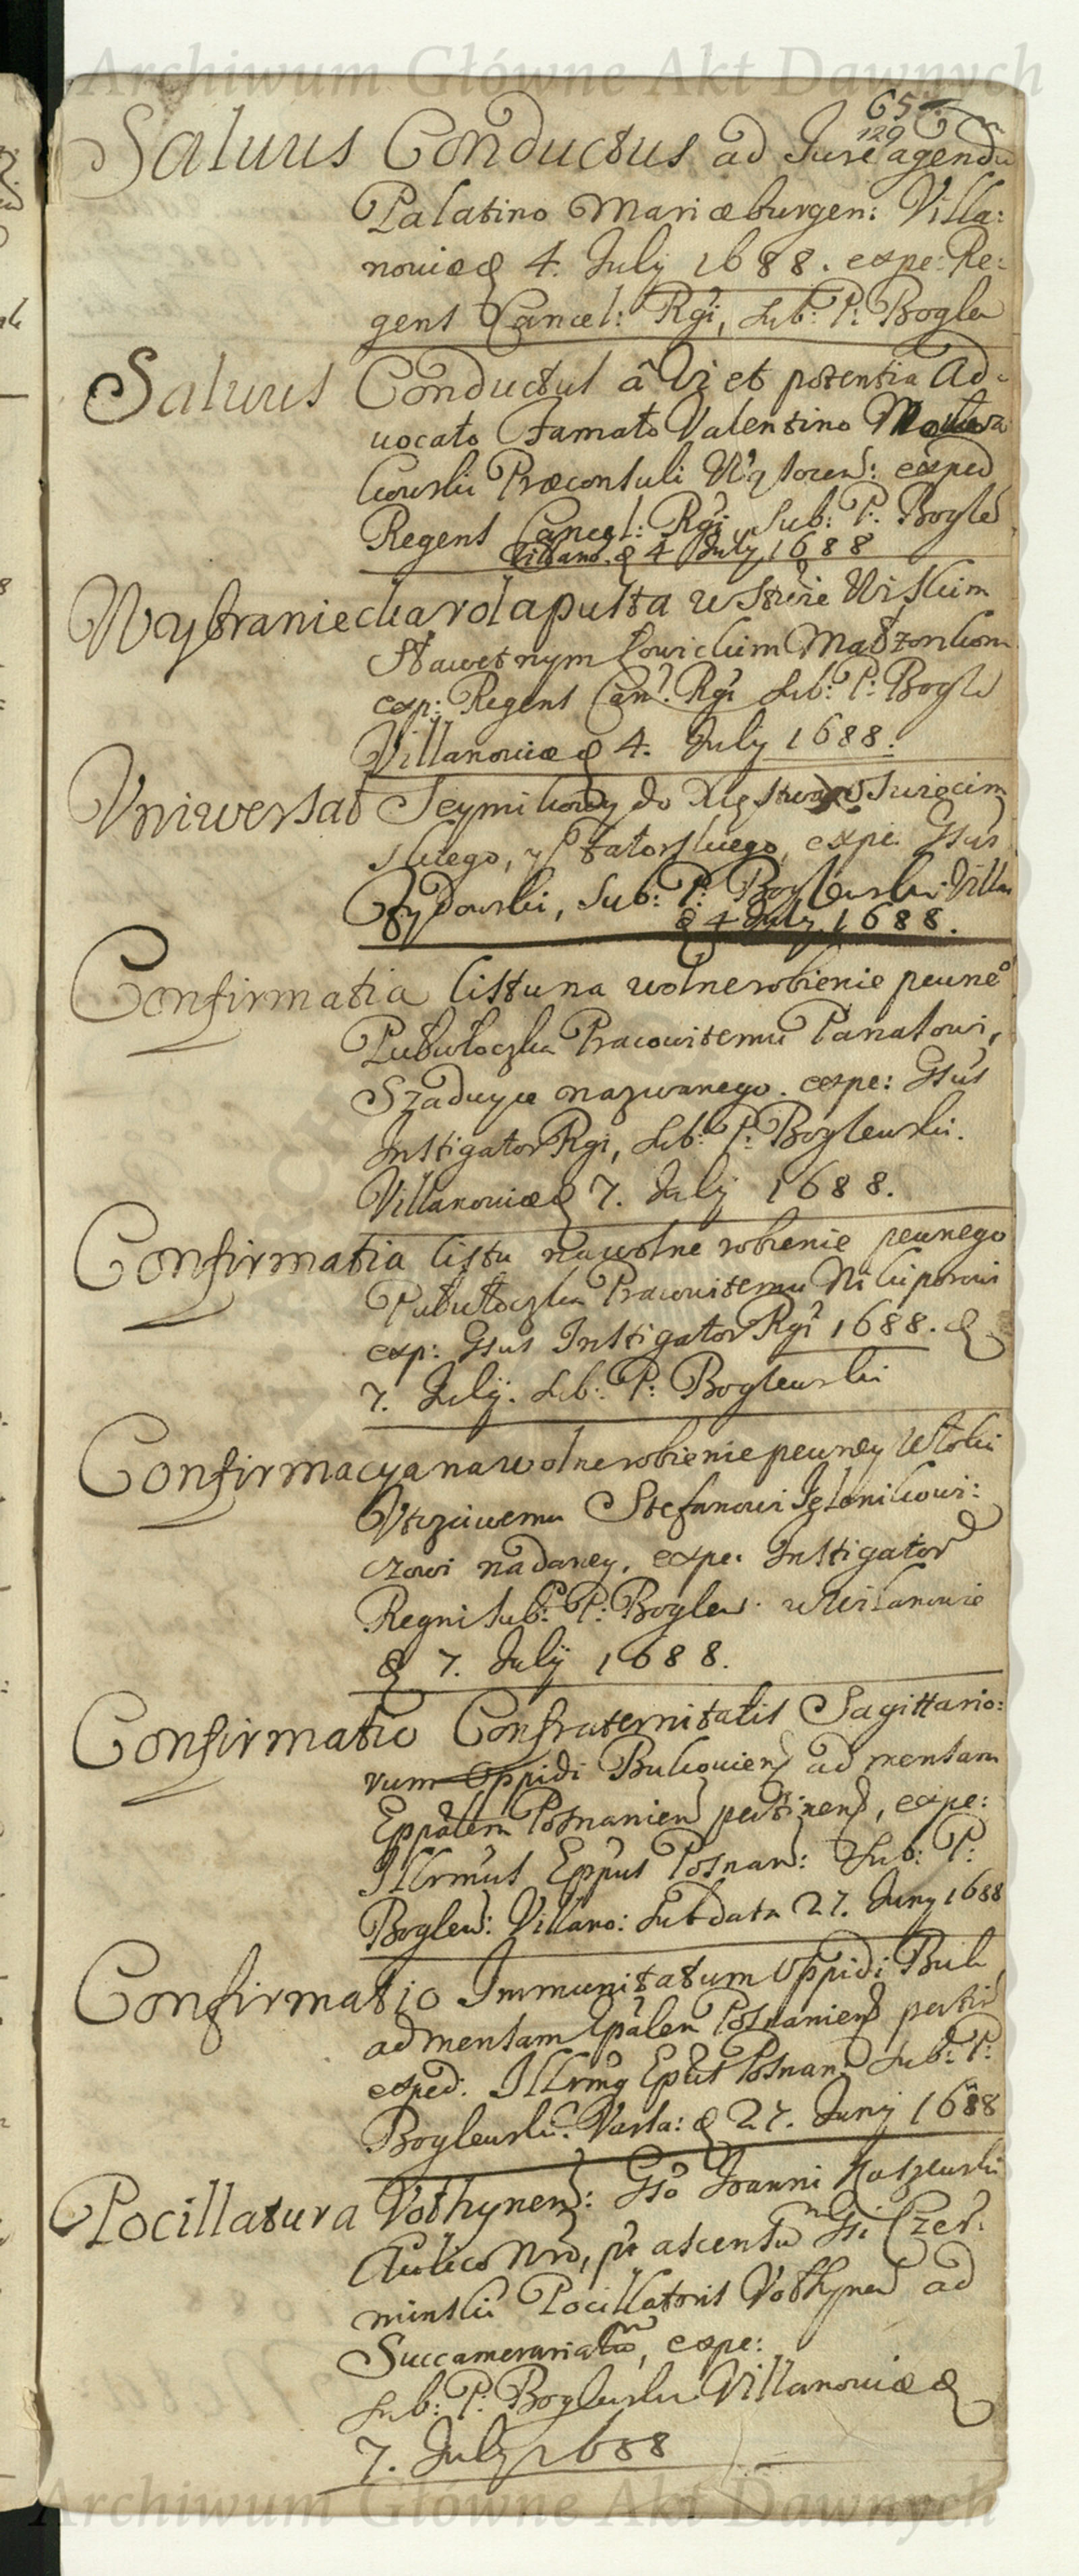 Archiwum Główne Akt Dawnych
65
129
Salvus Conductus ad Jure agendū
Palatino Mariæburgen: Villa:
noviæ d 4. July 1688. expe: Re:
gens Cancel: Rgi, sub: P: Bogle
Salvus Conductus â Vi et potentia Ad-
vocato Famato Valentino
Præconsuli exped
Regens Cancel: Rgi, Sub: P: Bogle
Villano. d 4 July 1688
Wybraniecka rola pusta w Stwie
Sławetnym Łowickim Małzonkom
exp: Regens Can: Rgi Sub: P: Bogle
Villanoviæ d 4. July 1688.
Vniwersał Seymikowy do Xięstwa Oswiecim
skiego, y Zatorskiego, expe. Gsus
Sub: P: Boglewski Villa
d 4 July 1688.
Confirmatia listu na wolne robienie pewne°
Pułwłoczka Pracowitemu Panasowi,
nazwanego. expe: Gsus
Instigator Rgi, Sub: P: Boglewski.
Villanoviæ d 7. July 1688.
Confirmatia listu na wolne robienie pewnego
Pułwłoczka Pracowitemu Nikiporowi
exp: Gsus Instigator Rgi 1688. d
7. July. Sub: P: Boglewski
Confirmacya na wolne robienie pewney Włoki
Vtczciwemu Stefanowi
czowi nadaney, expe. Instigator
Regni Sub: P: Boglew. w Wilanowie
d 7. July 1688.
Confirmatio Confraternitatis Sagittario:
rum Oppidi Bukovien ad mensam
Eppalem Posnanien pertinen, expe:
Illrmus Eppus Posnan: Sub: P:
Boglew: Villano: sub data 27. Juny 1688
Confirmatio Immunitatum Oppidi Buk
ad mensam Epalem Posnanien pertin
exped. Illrmg Epus Posnan: Sub: P:
Boglewski. Varsa: d 27. Juny 1688
Pocillatura Volhynen: Gso Joanni
Aulico Nro, pt ascensū Gsi Czer-
minskii Pocillatoris Volhynen ad
Succamerariatū, expe:
Sub: P: Boglewski Villanoviæ d
7. July 1688
Archiwum Główne Akt Dawnych